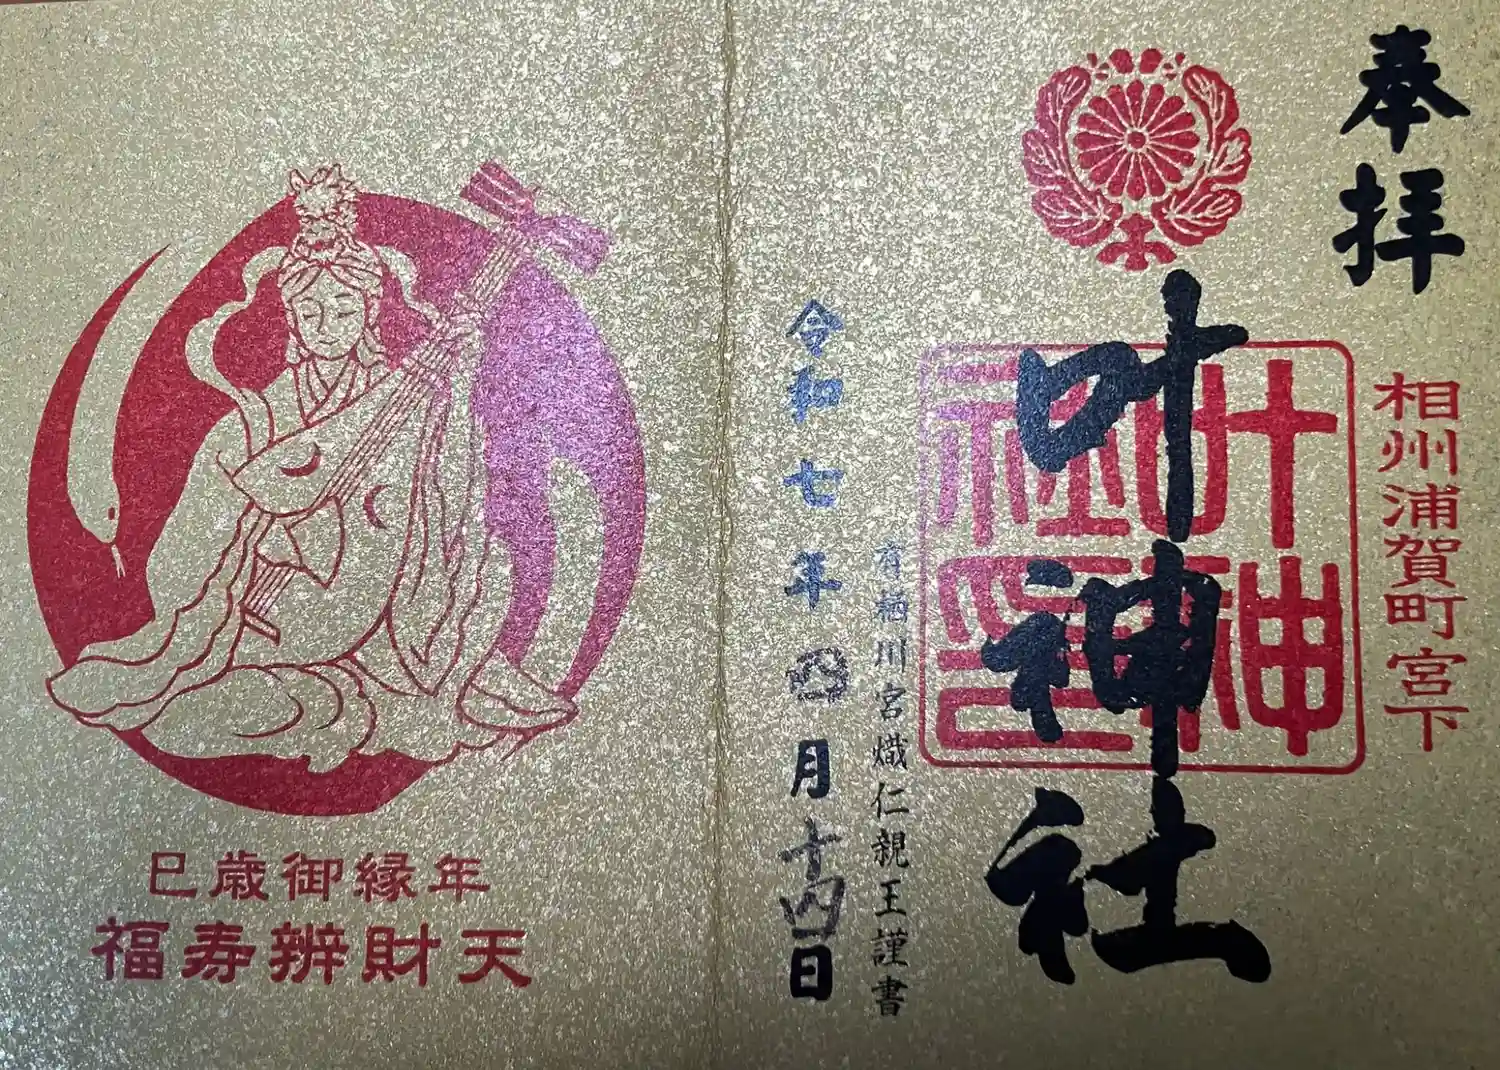 奉拝
相州浦賀町宮下
叶神社
叶神社印
有栖川宮熾仁親王謹書
令和七年四月十四日
巳歳御縁年
福寿辨財天